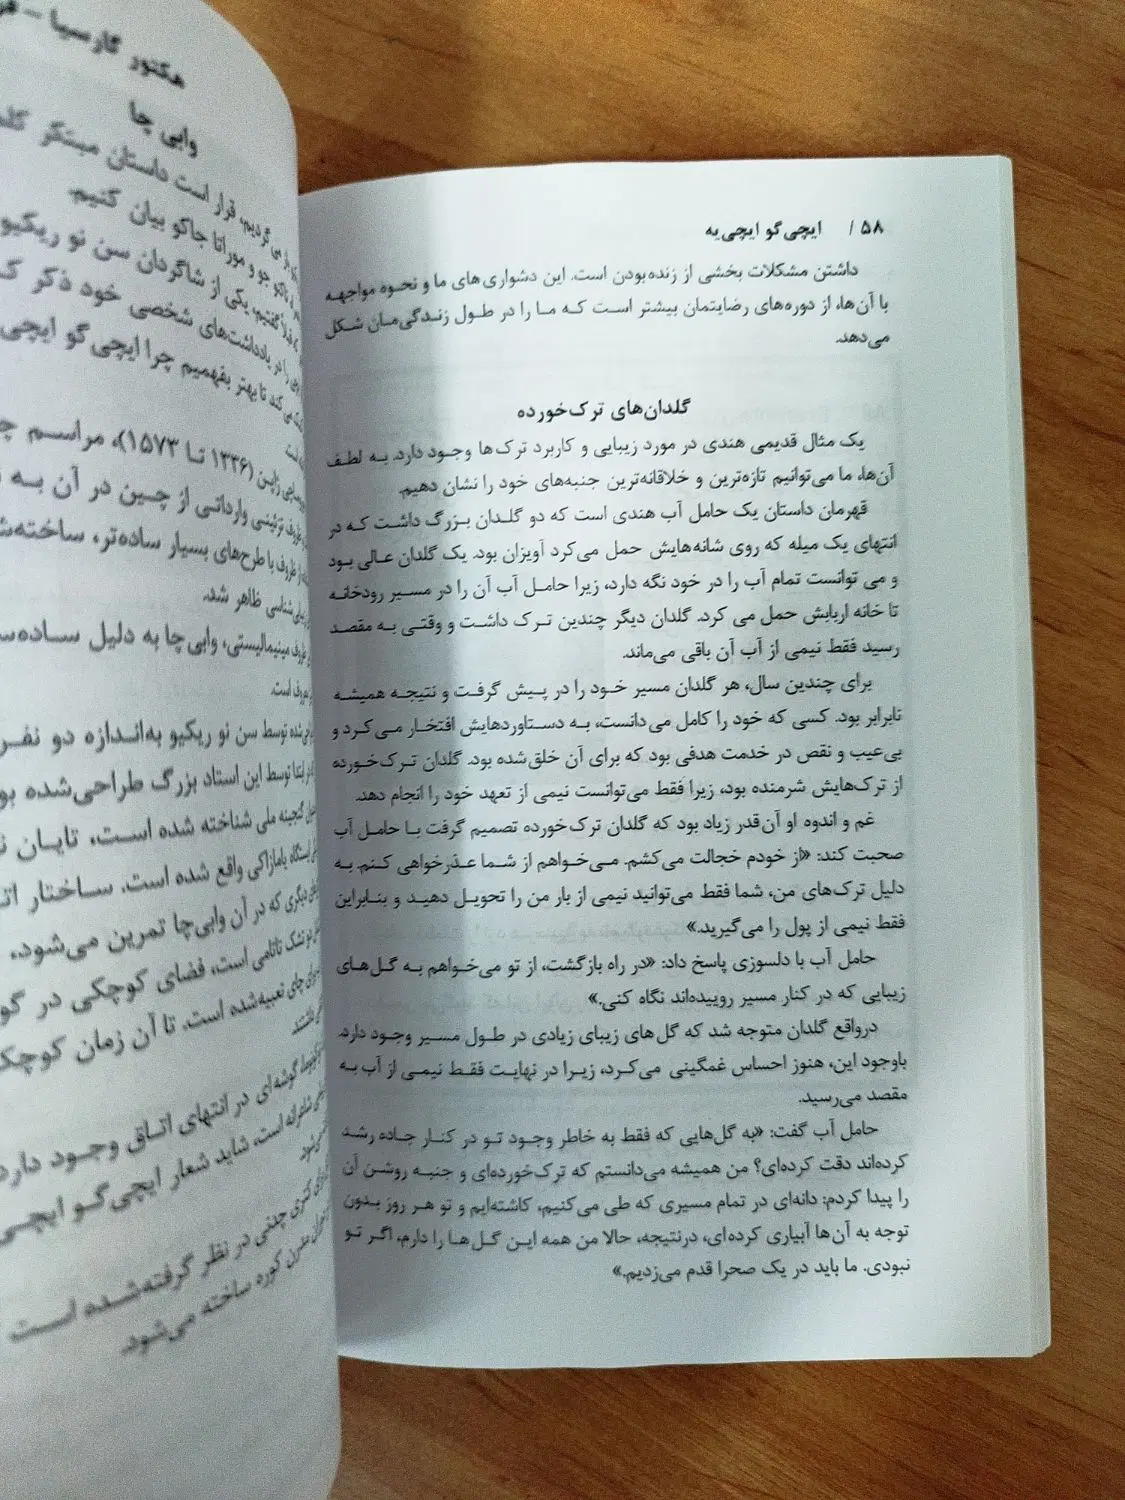 ۵۸ / ایچی‌گو ایچی‌یه
داشتن مشکلات بخشی از زنده‌بودن است. این دشواری‌های ما و نحوه مواجهه
با آن‌ها، از دوره‌های رضایتمان بیشتر است که ما را در طول زندگی‌مان شکل
می‌دهد.
گلدان‌های ترک‌خورده
یک مثال قدیمی هندی در مورد زیبایی و کاربرد ترک‌ها وجود دارد. به لطف
آن‌ها، ما می‌توانیم تازه‌ترین و خلاقانه‌ترین جنبه‌های خود را نشان دهیم.
قهرمان داستان یک حامل آب هندی است که دو گلدان بزرگ داشت که در
انتهای یک میله که روی شانه‌هایش حمل می‌کرد آویزان بود. یک گلدان عالی بود
و می توانست تمام آب را در خود نگه دارد، زیرا حامل آب آن را در مسیر رودخانه
تا خانه اربابش حمل می کرد. گلدان دیگر چندین ترک داشت و وقتی به مقصد
رسید فقط نیمی از آب آن باقی می‌ماند.
برای چندین سال، هر گلدان مسیر خود را در پیش گرفت و نتیجه همیشه
نابرابر بود. کسی که خود را کامل می‌دانست، به دستاوردهایش افتخار می‌کرد و
بی‌عیب و نقص در خدمت هدفی بود که برای آن خلق‌شده بود. گلدان ترک‌خورده
از ترک‌هایش شرمنده بود، زیرا فقط می‌توانست نیمی از تعهد خود را انجام دهد.
غم و اندوه او آن‌قدر زیاد بود که گلدان ترک‌خورده تصمیم گرفت با حامل آب
صحبت کند: «از خودم خجالت می‌کشم. می‌خواهم از شما عذرخواهی کنم. به
دلیل ترک‌های من، شما فقط می‌توانید نیمی از بار من را تحویل دهید و بنابراین
فقط نیمی از پول را می‌گیرید.»
حامل آب با دلسوزی پاسخ داد: «در راه بازگشت، از تو می‌خواهم به گل‌های
زیبایی که در کنار مسیر روییده‌اند نگاه کنی.»
درواقع گلدان متوجه شد که گل‌های زیبای زیادی در طول مسیر وجود دارد.
باوجود این، هنوز احساس غمگینی می‌کرد، زیرا در نهایت فقط نیمی از آب به
مقصد می‌رسید.
حامل آب گفت: «به گل‌هایی که فقط به خاطر وجود تو در کنار جاده رشد
کرده‌اند دقت کرده‌ای؟ من همیشه می‌دانستم که ترک‌خورده‌ای و جنبه روشن آن
را پیدا کردم: دانه‌ای در تمام مسیری که طی می‌کنیم، کاشته‌ایم و تو هر روز بدون
توجه به آن‌ها آبیاری کرده‌ای، درنتیجه، حالا من همه این گل‌ها را دارم، اگر تو
نبودی. ما باید در یک صحرا قدم می‌زدیم.»
هکتور گارسیا –
وابی چا
قرار است داستان مبتکر
جو و موراتا جاکو بیان کنیم.
یکی از شاگردان سن نو ریکیو
را در یادداشت‌های شخصی خود ذکر
کند تا بهتر بفهمیم چرا ایچی‌گو ایچی
ژاپن (۱۳۳۶ تا ۱۵۷۳)، مراسم
تزئینی وارداتی از چین در آن به
ظروف با طرح‌های بسیار ساده‌تر،
ظاهر شد.
ظروف مینیمالیستی، وابی‌چا به دلیل
معروف است.
توسط سن نو ریکیو به‌اندازه دو نفر
ابتدا توسط این استاد بزرگ طراحی‌شده
گنجینه ملی شناخته شده است. تایان
ایستگاه یامازاکی واقع شده است. ساختار
دیگری که در آن وابی‌چا تمرین می‌شود،
تشک تاتامی است، فضای کوچکی در
چای تعبیه‌شده است. تا آن زمان
گوشه‌ای در انتهای اتاق وجود
شاعرانه است، شاید شعار ایچی‌گو
کتری چدنی در نظر گرفته‌شده است
کوره ساخته می‌شود.